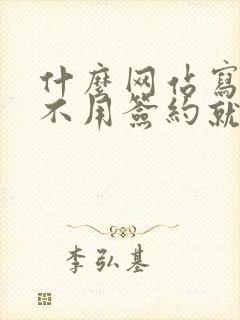 什麼网佔寫
不用簽約就
李弘基